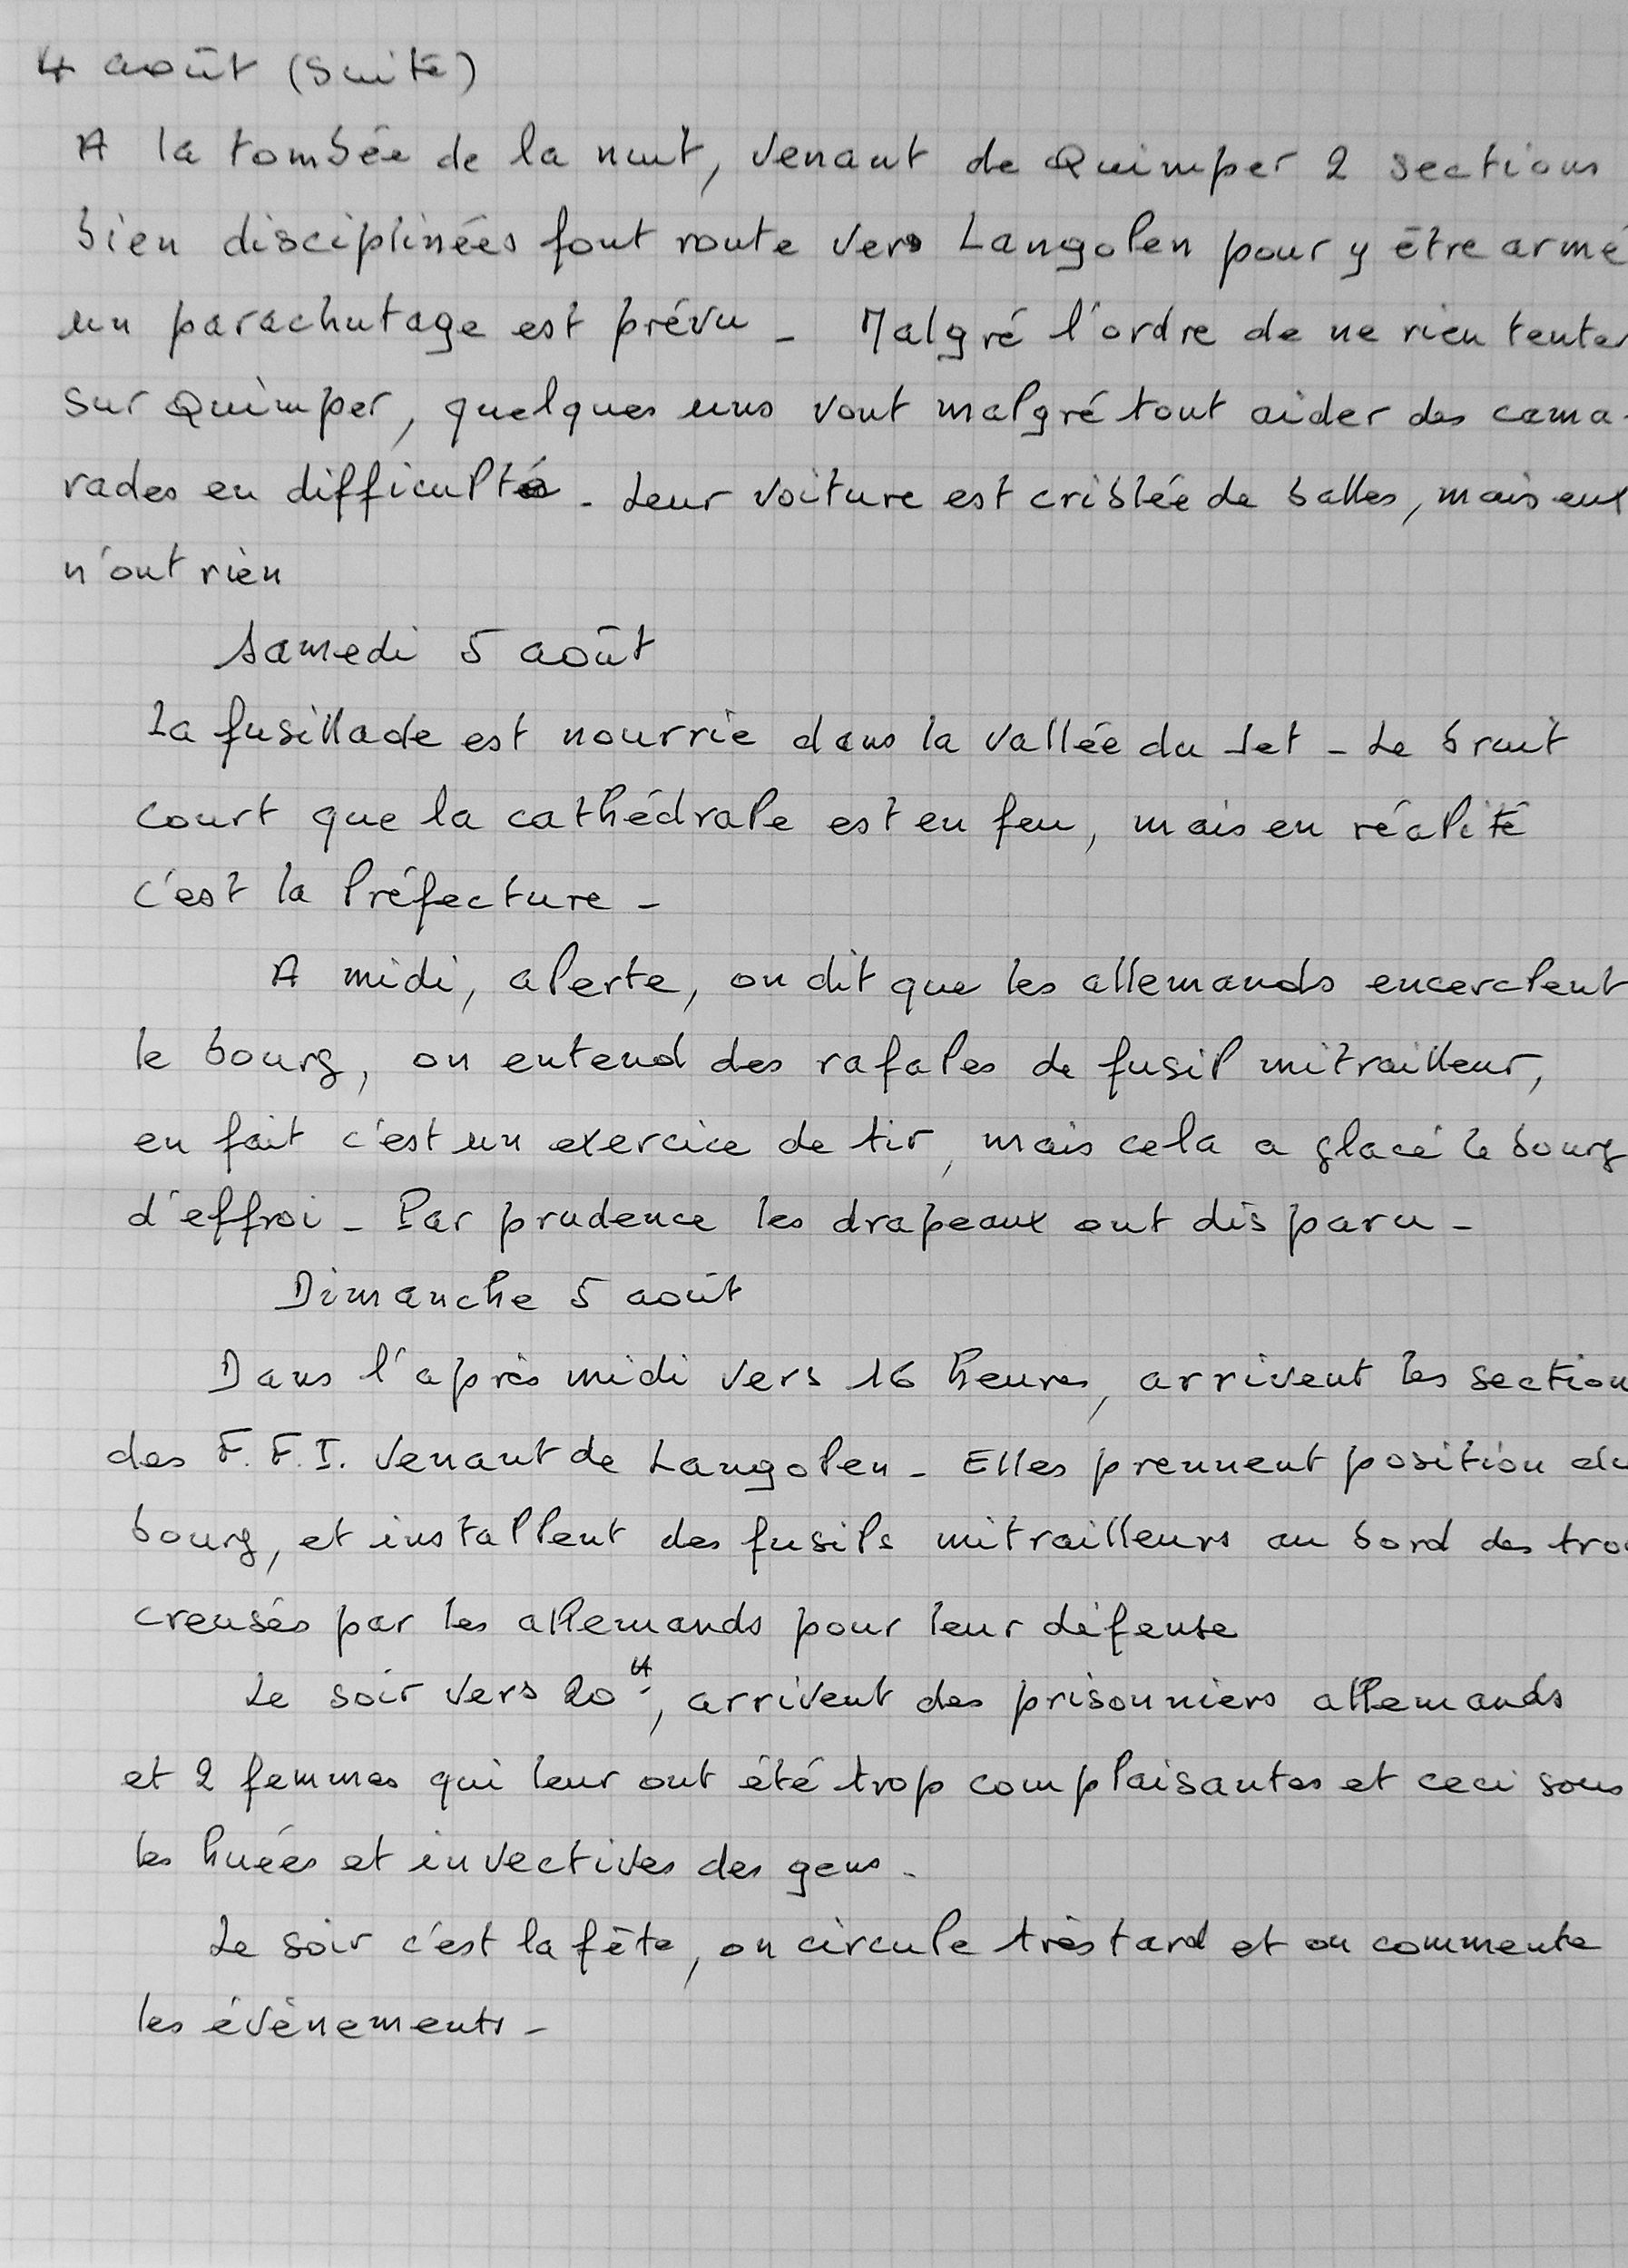 4 août (suite)
A la tombée de la nuit, venant de Quimper 2 sections
bien disciplinées font route vers Langolen pour y être armé
un parachutage est prévu - Malgré l'ordre de ne rien tenter
sur Quimper, quelques uns vont malgré tout aider des cama-
rades en difficulté - Leur voiture est criblée de balles, mais eux
n'ont rien
Samedi 5 août
La fusillade est nourrie dans la vallée du Jet - Le bruit
court que la cathédrale est en feu, mais en réalité
c'est la Préfecture -
A midi, alerte, on dit que les allemands encerclent
le bourg, on entend des rafales de fusil mitrailleur,
en fait c'est un exercice de tir, mais cela a glacé le bourg
d'effroi - Par prudence les drapeaux ont disparu -
Dimanche 5 août
Dans l'après midi vers 16 heures, arrivent les section
des F.F.I. venant de Langolen - Elles prennent position du
bourg, et installent des fusils mitrailleurs au bord des trou
creusés par les allemands pour leur défense
Le soir vers 20H, arrivent des prisonniers allemands
et 2 femmes qui leur ont été trop complaisantes et ceci sous
les huées et invectives des gens.
Le soir c'est la fête, on circule très tard et on commente
les évènements -